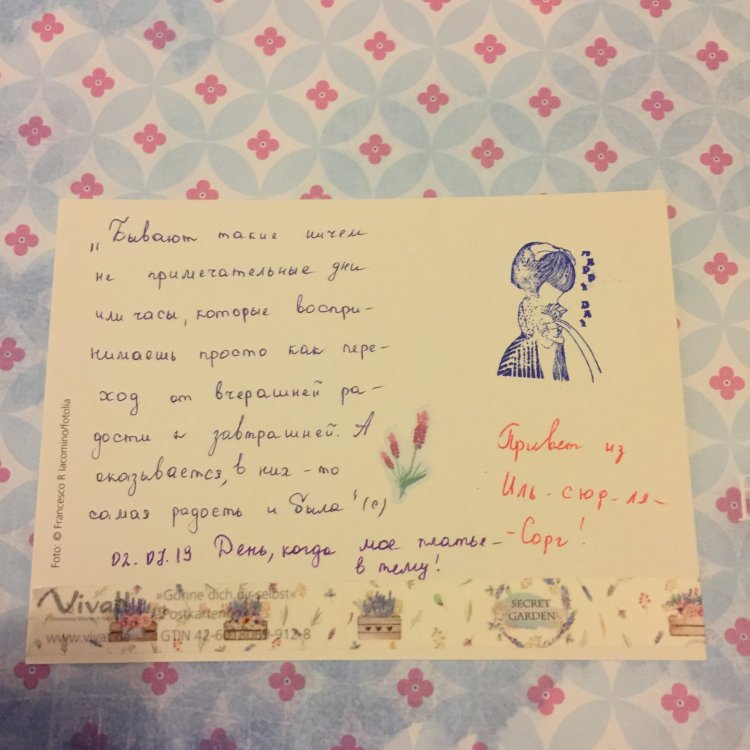 „Бывают такие ничем
не примечательные дни
или часы, которые воспри-
нимаешь просто как пере-
ход от вчерашней ра-
дости к завтрашней. А
оказывается, в них-то
самая радость и была" (с)
02.07.19 День, когда мое платье -
в тему!
HAPPY DAY
Привет из
Иль-сюр-ля-
-Сорг!
Foto: © Francesco R Iacomino/fotolia
»Gönne dich dir selbst«
Postkarten
www.viva
GTIN 42-
-912-8
SECRET
GARDEN